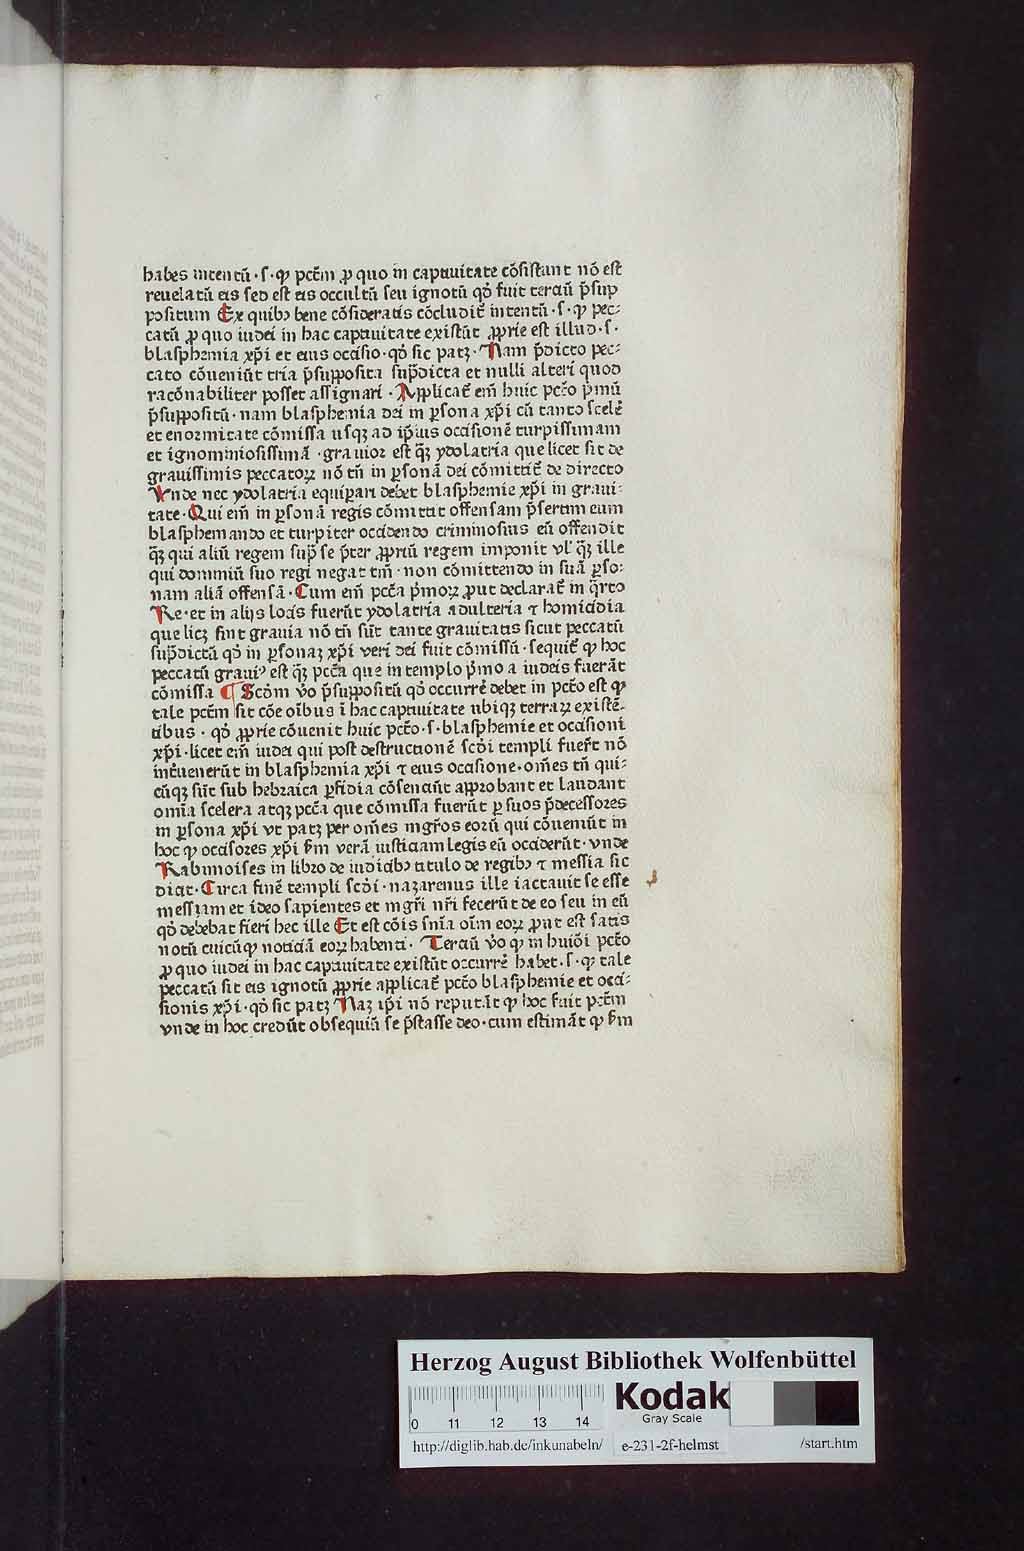 habes intentū · s · ꝙ pctm̄ ꝓ quo in captiuitate cōsistant nō est
reuelatū eis sed est eis occultū seu ignotū qd̓ fuit terciū p̄sup
positum Ex quibꝫ bene cōsideratis cōcludit᷑ intentū · s · ꝙ pec⸗
catū ꝓ quo iudei in hac captiuitate existūt ꝓprie est illud · s ·
blasphemia xp̄i et eius occisio · qd̓ sic patꝫ · Nam p̄dicto pec⸗
cato cōueniūt tria p̄supposita sup̄dicta et nulli alteri quod
racōnabiliter posset assignari · Applicat᷑ em̄ huic pctō p̓mū
p̄suppositū · nam blasphemia dei in ꝑsona xp̄i cū tanto scele᷑
et enormitate cōmissa usqꝫ ad ip̄ius occisionē turpissimam
et ignominiosissimā · grauior est q̄ꝫ ydolatria que licet sit de
grauissimis peccatoꝝ nō tn̄ in ꝑsonā dei cōmittit᷑ de directo
Vnde nec ydolatria equiꝑari debet blasphemie xp̄i in graui⸗
tate · Qui em̄ in ꝑsonā regis cōmittit offensam p̄sertim eum
blasphemando et turpiter occidendo criminosius eū offendit
q̄ꝫ qui aliū regem sup̄ se p̄ter ꝓpriū regem imponit vl̓ q̄ꝫ ille
qui dominiū suo regi negat tm̄ · non cōmittendo in suā ꝑso⸗
nam aliā offensā · Cum em̄ pctā p̓moꝝ ꝓut declarat᷑ in q̓rto
Re · et in alijs locis fuerūt ydolatria adulteria ⁊ homicidia
que licꝫ sint grauia nō tn̄ sūt tante grauitatis sicut peccatū
sup̄dictū qd̓ in ꝑsonaꝫ xp̄i veri dei fuit cōmissū · sequit᷑ ꝙ hoc
peccatū graui᷒ est q̄ꝫ pctā que in templo p̓mo a iudeis fuerāt
cōmissa ¶ Scd̓m v̓o p̄suppositū qd̓ occurre᷑ debet in pctō est ꝙ
tale pctm̄ sit cōe oībus ī hac captiuitate ubiqꝫ terraꝝ existē⸗
tibus · qd̓ ꝓprie cōuenit huic pctō · s · blasphemie et occisioni
xp̄i · licet em̄ iudei qui post destructionē scd̓i templi fuer̄t nō
int̓uenerūt in blasphemia xp̄i ⁊ eius occisione · om̄es tn̄ qui⸗
cūqꝫ sūt sub hebraica ꝑfidia cōsenciūt approbant et laudant
omīa scelera atqꝫ pctā que cōmissa fuerūt ꝑ suos p̄decessores
in ꝑsona xp̄i vt patꝫ per om̄es mgr̄os eorū qui cōueniūt in
hoc ꝙ occisores xp̄i ẜm verā iusticiam legis eū occiderūt · vnde
Rabimoises in libro de iudicibꝫ titulo de regibꝫ ⁊ messia sic
dicit · Circa finē templi scd̓i · nazarenus ille iactauit se esse
messiam et ideo sapientes et mgr̄i nr̄i fecerūt de eo seu in eū
qd̓ debebat fieri hec ille Et est cōis sn̄ia oīm eoꝝ ꝓut est satis
notū cuicūqꝫ noticiā eoꝝ habenti · Terciū v̓o ꝙ in huiōi pctō
ꝓ quo iudei in hac captiuitate existūt occurre᷑ habet · s · ꝙ tale
peccatū sit eis ignotū ꝓprie applicat᷑ pctō blasphemie et occi⸗
sionis xp̄i · qd̓ sic patꝫ Naꝫ ip̄i nō reputāt ꝙ hoc fuit pctm̄
vnde in hoc credūt obsequiū se p̄stasse deo · cum estimāt ꝙ ẜm
Herzog August Bibliothek Wolfenbüttel
0 11 12 13 14
Kodak
Gray Scale
http://diglib.hab.de/inkunabeln/ e-231-2f-helmst /start.htm